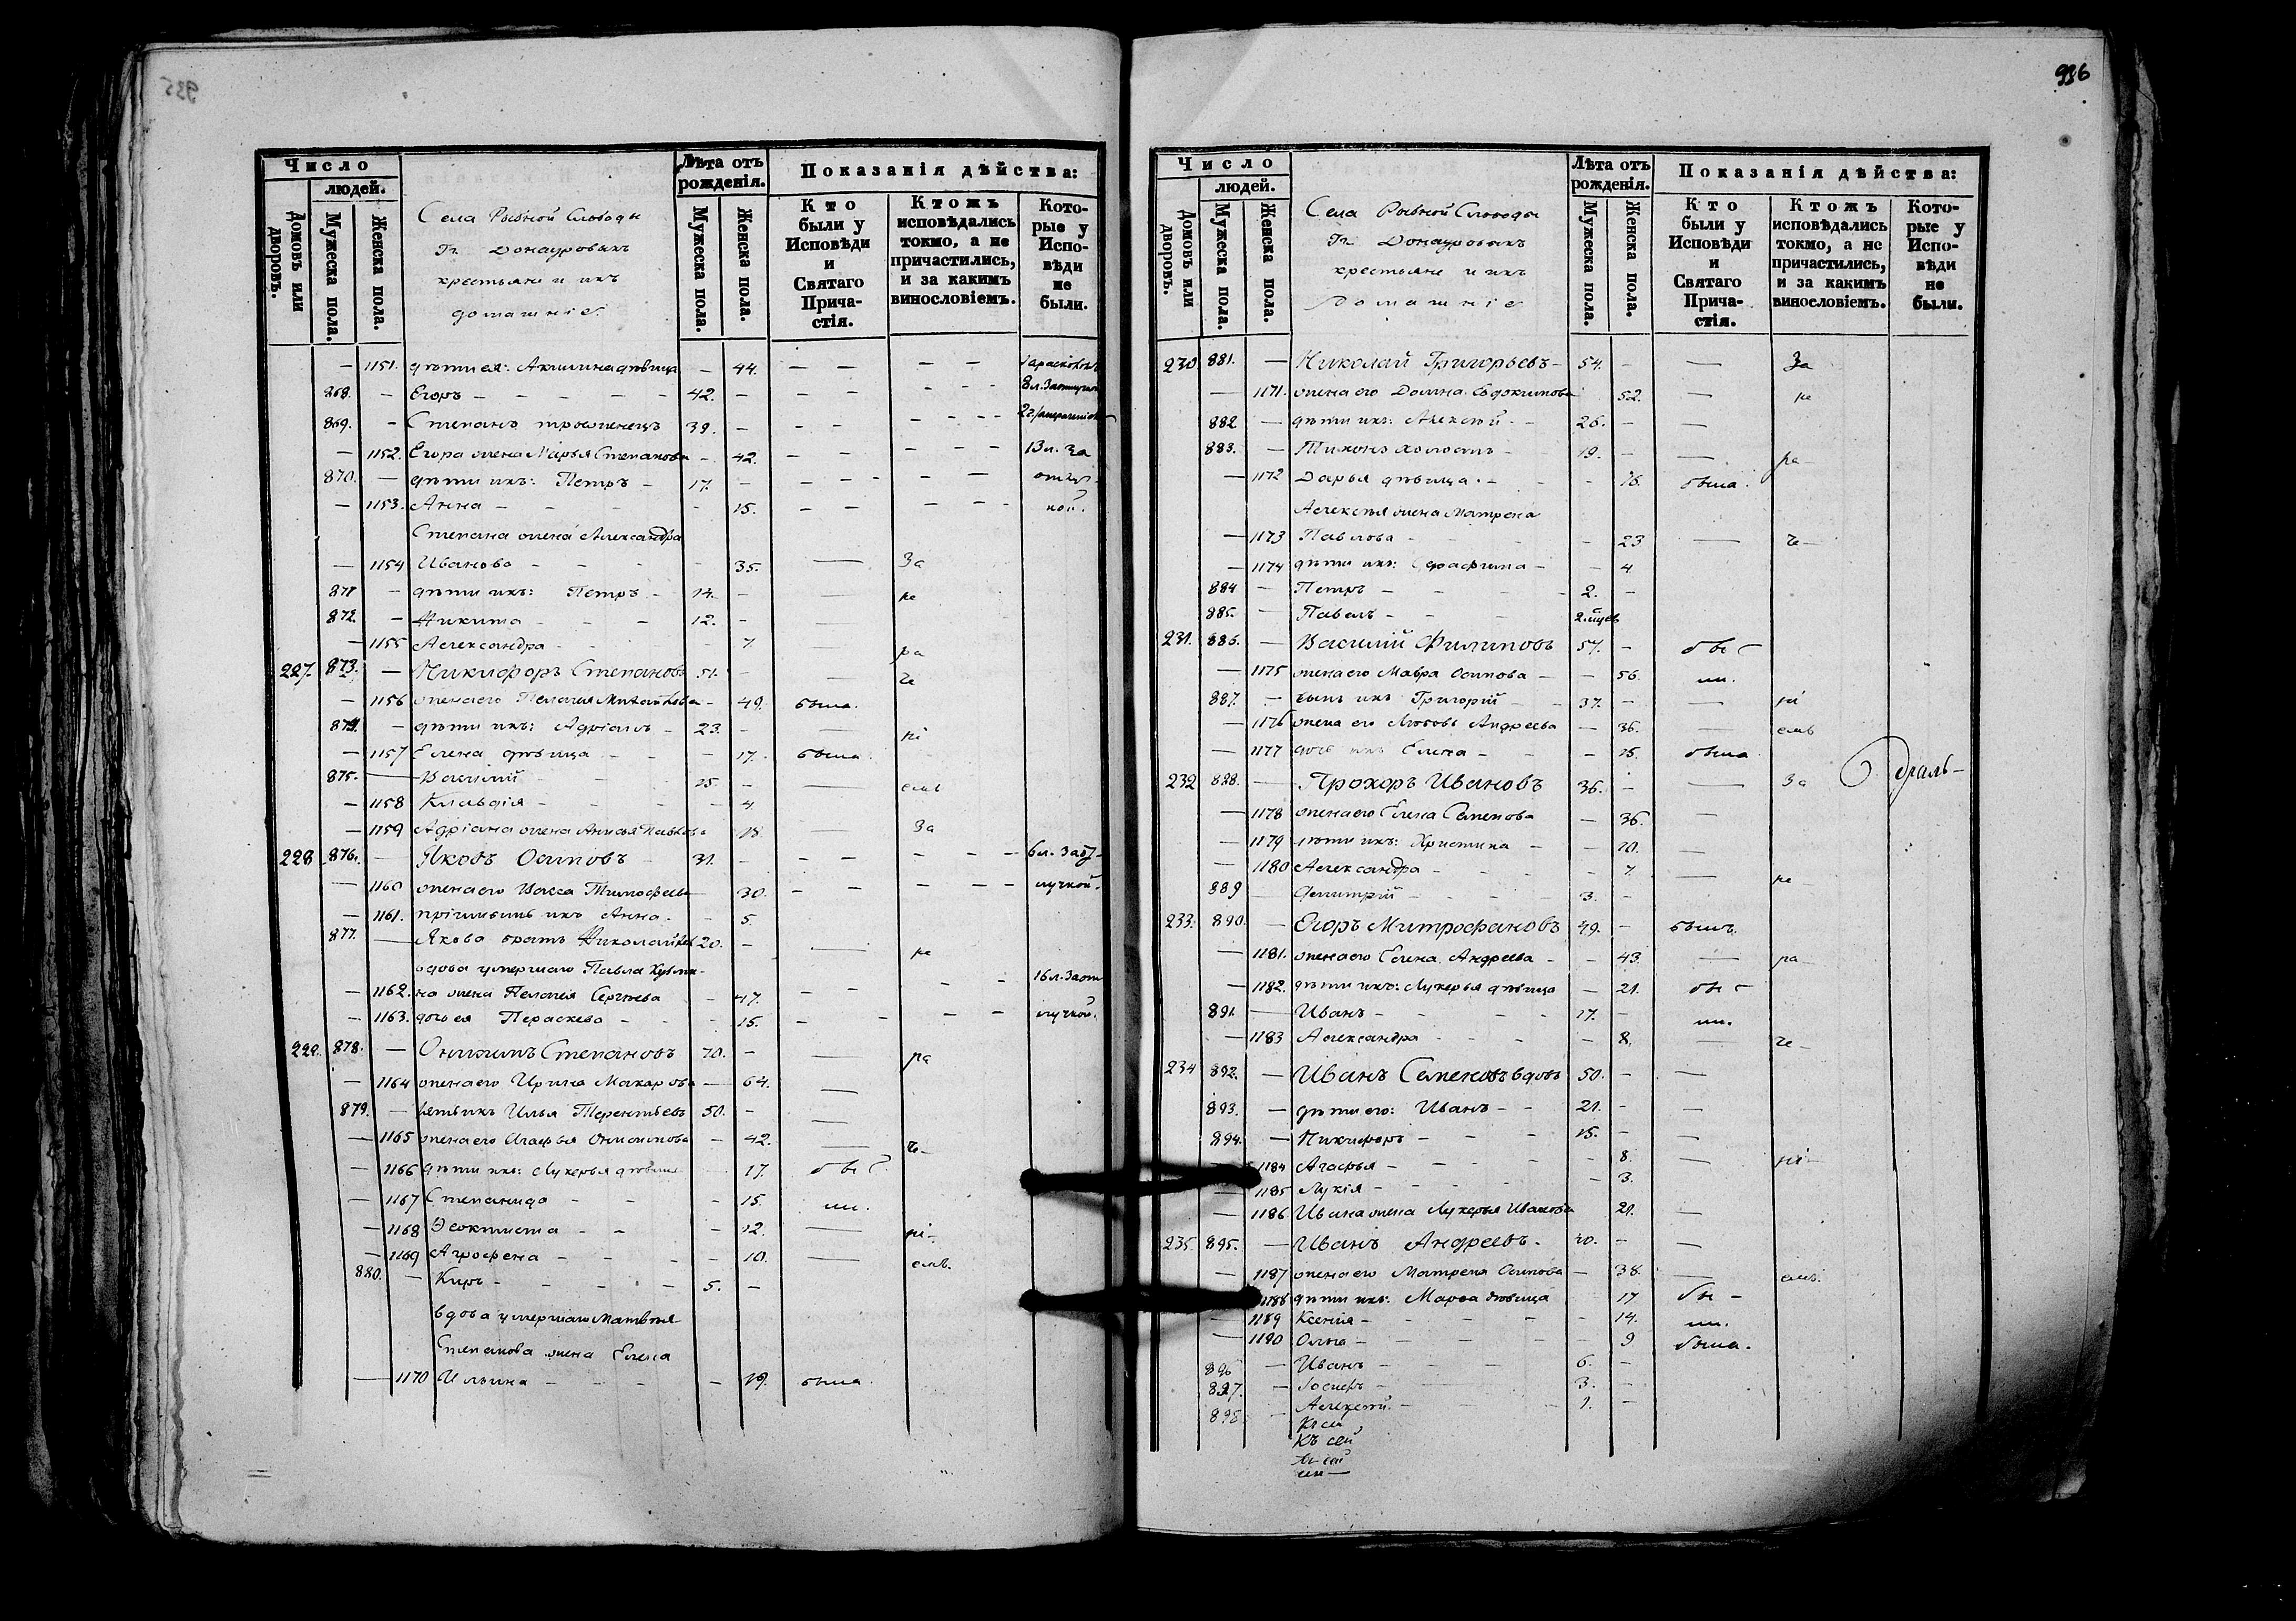 935
Число
людей.
Домовъ или дворовъ.
Мужеска пола.
Женска пола.
Села Рыбной Слободы
Гг. Донауровыхъ
крестьяне и ихъ
домашніе.
Лѣта отъ рожденія.
Мужеска пола.
Женска пола.
Показанія дѣйства:
Кто были у Исповѣди и Святаго Прича-стія.
Ктожъ исповѣдались токмо, а не причастились, и за какимъ винословіемъ.
Кото-рые у Испо-вѣди не были.
— 1151. дѣти ея: Акилина дѣвица — 44. — — — —
868. — Егоръ — — — — 42. — — — — — —
869. — Степанъ 39. — — — — — —
— 1152. Егора жена Марья Степанова — 42. — — — — — 13 л. За
870. — дѣти ихъ: Петръ — 17. — — — — — —
— 1153. Анна — — — 15. — — — — —
Степана жена Александра
— 1154 Иванова — — — — 35. — За
871 — дѣти ихъ: Петръ — 14. — — ра
872. — Никита — — 12. — —
— 1155 Александра — — 7. — ра
227. 873. — Никифоръ Степановъ 51. — — че
— 1156 жена его Пелагия Михайлова — 49. была.
874. — дѣти ихъ: Адріанъ — 23. — — ні
— 1157 Елена дѣвица — — 17. была.
875. — Василій 15. — — емъ
— 1158 Клавдія — — — 4.
— 1159 Адріана жена Анисья Павлова 18. — За
228 876. — Яковъ Осиповъ — 31. — — — — — — 6 л. За от-
— 1160 жена его Васса Тимофеева — 30. — — — — — лучкой.
— 1161. ихъ Анна — — 5.
877. — Якова братъ Николай 20. — — ра
вдова умершаго Павла Кузми-
16 л. За от
— 1162. на жена Пелагея Сергеева — 47. — — — —
— 1163. дочь ея Параскева — — — 15. — — — — лучкой.
229. 878. — Онисимъ Степановъ 70. — — ра
— 1164 жена его Ирина Макарова — 64. —
879. — зять ихъ Илья Терентьевъ 50. — —
— 1165 жена его Агафья Онисимова — 42. — че
— 1166 дѣти ихъ: Лукерья дѣвица 17. бы
— 1167 Степанида — — — 15. ли.
— 1168 Феоктиста — — — 12. — ні
— 1169 Агрофена — — — — 10. — емъ.
880. — Киръ — — — — 5. —
вдова умершаго Матвѣя
Степанова жена Елена
— 1170 Ильина — — — — 49. была.
936
Число
людей.
Домовъ или дворовъ.
Мужеска пола.
Женска пола.
Села Рыбной Слободы
Гг. Донауровыхъ
крестьяне и ихъ
домашніе
Лѣта отъ рожденія.
Мужеска пола.
Женска пола.
Показанія дѣйства:
Кто были у Исповѣди и Святаго Прича-стія.
Ктожъ исповѣдались токмо, а не причастились, и за какимъ винословіемъ.
Кото-рые у Испо-вѣди не были.
230. 881. — Николай Григорьевъ — 54. — — За
— 1171. жена его Домна Евдокимова 52. — ра
882 — дѣти ихъ: Алексей — — 26. — —
883. — Тихонъ холостъ — 19. — — ра
— 1172 Дарья дѣвица — — — 16. была.
Алексея жена Матрена
— 1173 Павлова — — — — 23 — че
— 1174 дѣти ихъ: — — 4.
884 — Петръ — — — — 2. —
885. — Павелъ — — —
231. 886. — Василій Филиповъ 57. — бы
— 1175 жена его Мавра Осипова — — 56. ли.
887. — сынъ ихъ Григорій — — 37. — — ні
— 1176 жена его Любовь Андреева — 36. — емъ
— 1177 дочь ихъ Елена — — — 15. была
232 888. — Прохоръ Ивановъ 36. — — За
— 1178 жена его Елена Семенова — 36. —
— 1179 дѣти ихъ: Христина — — 10. —
— 1180 Александра — — — — 7. — ра
889 — Димитрій — — — — 3. —
233. 890. — Егоръ Митрофановъ 49. — былъ.
— 1181. жена его Елена Андреева — — 43. — ра
— 1182. дѣти ихъ: Лукерья дѣвица — 21. бы
891. — Иванъ — — — — 17. — ли.
— 1183 Александра — — — — 8. — че
234 892. — Иванъ Семеновъ вдовъ 50. — —
893. — дѣти его: Иванъ — — 21. — —
894. — Никифоръ — — — 15. — —
1184 Агафья — — — — 8. ні
— 1185 Лукія — — — — 3.
— 1186 Ивана жена Лукерья Иванова 21. —
235. 895. — Иванъ Андреевъ — 40. — —
— 1187 жена его Матрена Осипова — 38. — емъ.
1188 дѣти ихъ: Марфа дѣвица 17 бы —
1189 Ксенія — — — — 14. ли.
— 1190 Ольга — — — — — 9 была.
896 — Иванъ — — — 6. —
897. — Іосифъ — — 3. —
898 — Алексей — — 1. —
Къ сей
Къ сей